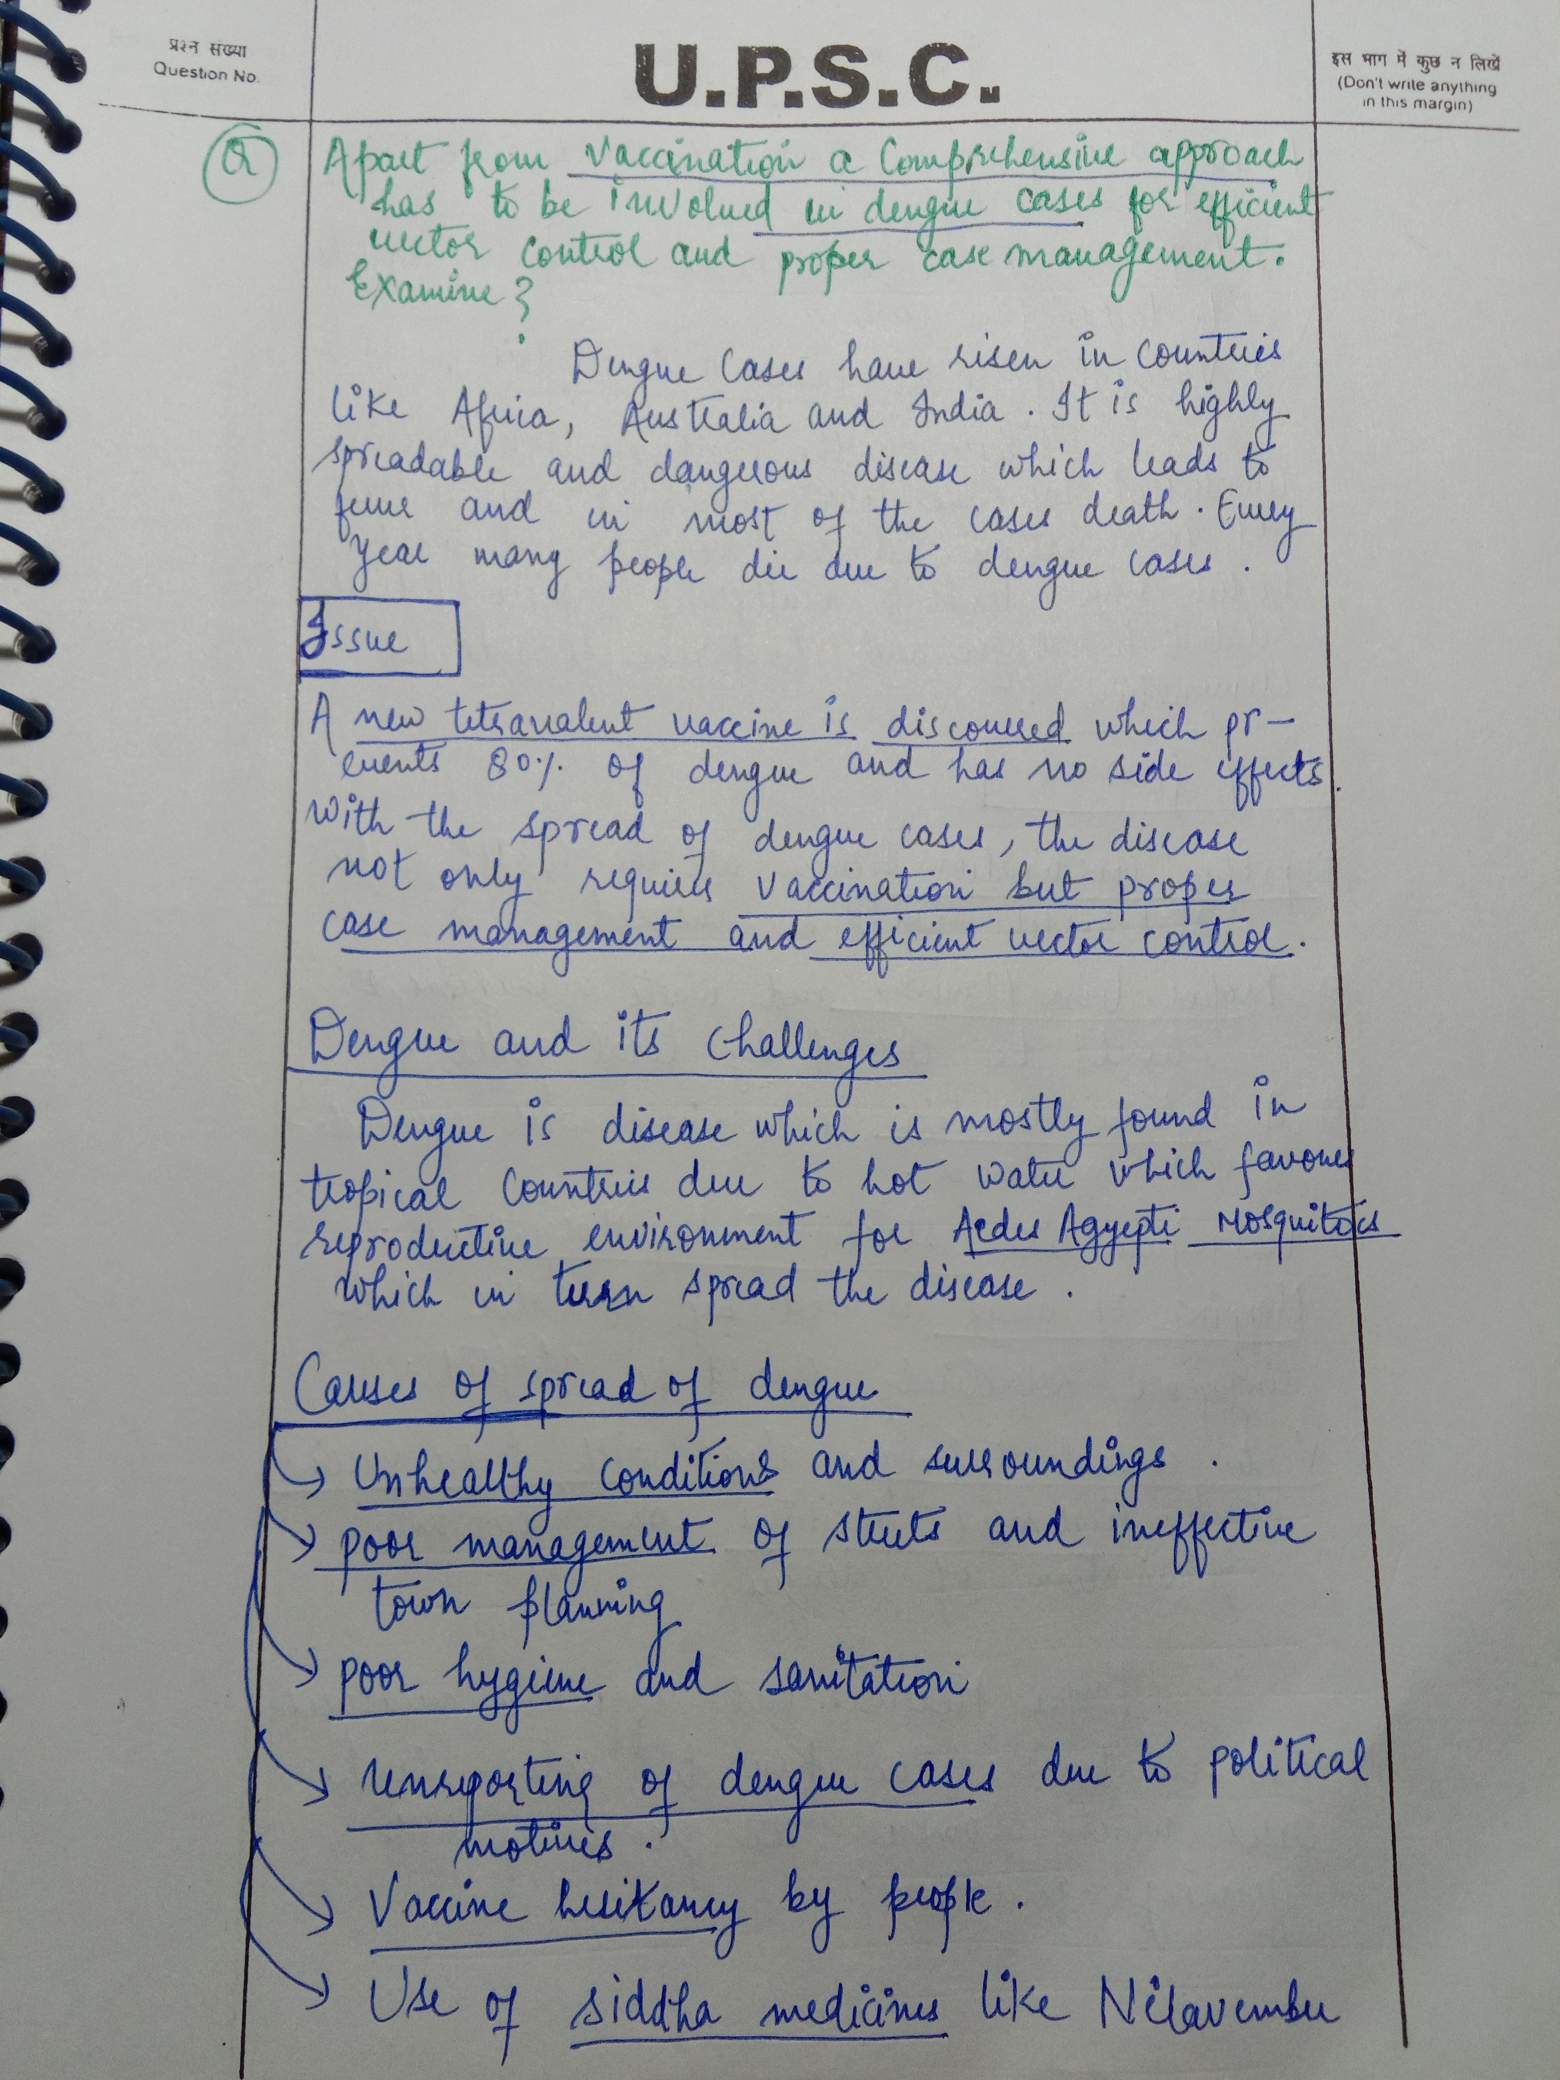 प्रश्न संख्या
Question No.
U.P.S.C.
इस भाग में कुछ न लिखें
(Don't write anything
in this margin)
Q
Apart from vaccination a comprehensive approach
has to be involved in dengue cases for efficient
vector control and proper case management.
Examine?
Dengue cases have risen in countries
like Africa, Australia and India. It is highly
spreadable and dangerous disease which leads to
fever and in most of the cases death. Every
year many people die due to dengue cases.
Issue
A new tetravalent vaccine is discovered which pr-
events 80% of dengue and has no side effects.
With the spread of dengue cases, the disease
not only requires vaccination but proper
case management and efficient vector control.
Dengue and its challenges
Dengue is disease which is mostly found in
tropical countries due to hot water which favours
reproductive environment for Aedes Agyepti Mosquitoes
which in turn spread the disease.
Causes of spread of dengue
→ Unhealthy conditions and surroundings.
→ poor management of streets and ineffective
town planning
→ poor hygiene and sanitation
→ unreporting of dengue cases due to political
motives.
→ Vaccine hesitancy by people.
→ Use of siddha medicines like Nilavembu